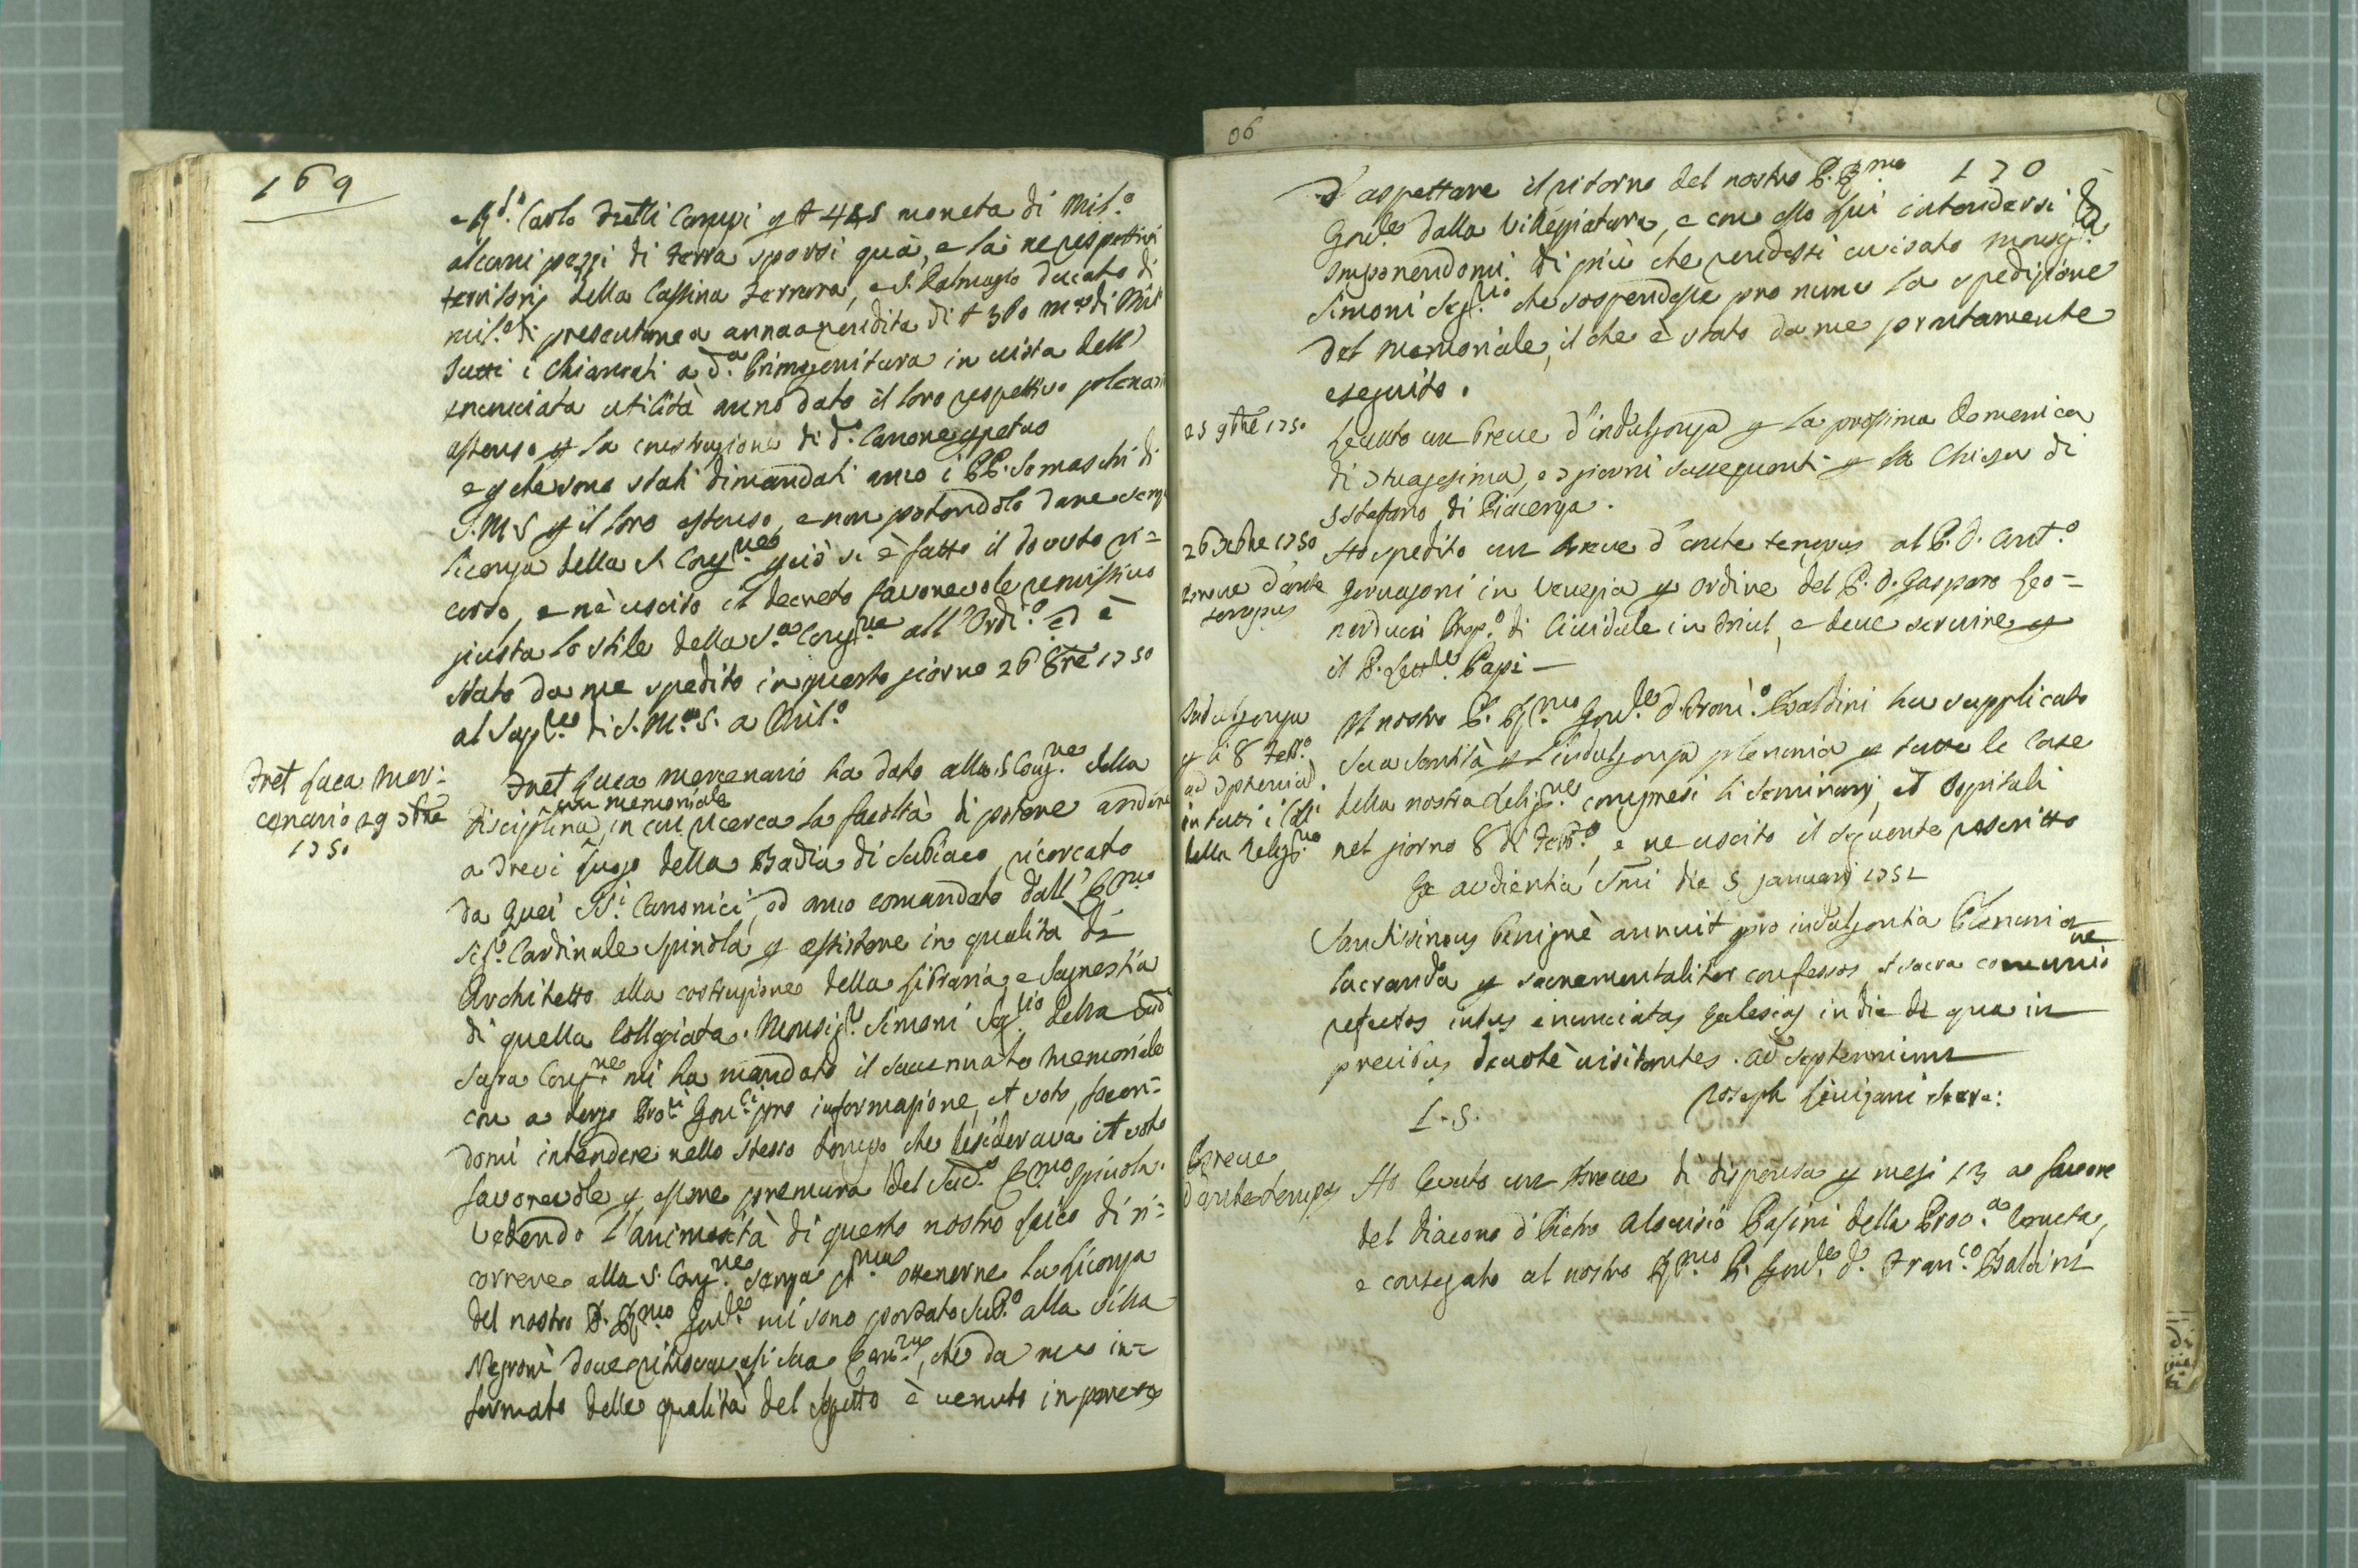 169
e R.do Carlo Fratelli Campi p # 445 moneta di Mil.o
alcuni pezzi di terra sparsi quà, e là ne respettivi
territorij della Cassina Ferrara, e S. Dalmazio ducato di
mil.o di presentanea annoa rendita di # 380 m.a di Mil.
Tutti i Chiamati a d.a Primogenitura in vista dell'
enunciata utilità anno dato il loro respettivo plenario
assenso p la costruzione di d.o Canone ppetuo
e p che sono stati dimandati anco i PP. Somaschi di
S.M.S p il loro assenso, e non potendolo dare senza
licenza della S. Cong.ne pciò si è fatto il dovuto ri=
corso, e n'è uscito il decreto favorevole remissivo
giusta lo stile della S.a Cong.ne all'Ordi.o ed è
stato da me spedito in questo giorno 26 8bre 1750
al Sup.re di S. M.a S. a Mil.o
Frat Luca Mer=
cenario 29 7bre
1750
Frat Luca Mercenario ha dato alla S. Cong.ne della
un memoriale
Disciplina, in cui ricerca la facoltà di potere andare
a Trevi luogo della Badia di Subiaco ricercato
da quei SS.i Canonici, ed anco comandato dall' E.mo
Sig.r Cardinale Spinola, p assistere in qualità di
Architetto alla costruzione della Libraria, e Sagrestia
di quella Collegiata. Monsig.r Simoni Seg.rio della sud.a
Sagra Cong.ne mi ha mandato il sucennato memoriale
con a tergo Pro.ri Gen.li pro informazione, et voto, facen=
domi intendere nello stesso tempo che desiderava il voto
favorevole p essere premura del sud.o E.mo Spinola.
Vedendo l'animosità di questo nostro laico di ri=
correre alla S. Cong.ne senza p.ma ottenerne la licenza
del nostro P. R.mo Gen.le mi sono portato sub.o alla villa
Negroni dove ritrovavasi sua Em.za, che da me in=
formato delle qualità del sogetto è venuto in parere
06
170
d'aspettare il ritorno del nostro P. R.mo
Gen.le dalla Villegiatura, e con esso lui intendersi
Imponendomi di più che rendessi avisato Monsig.r
Simoni Seg.rio che sospendesse pro nunc la spedizione
del memoriale, il che è stato da me prontamente
eseguito.
25 9bre 1750
Levato un Breve d'indulgenza p la prossima Domenica
di 7tuagesima, e 2 giorni susseguenti p la Chiesa di
S Stefano di Piacenza.
26 Xbre 1750
Breve d'ante
tempus
Ho spedito un Breve d'ante tempus al P. D. Ant.o
Gervasoni in Venezia p ordine del P. D. Gasparo Leo=
narducci Prep.o di Cividale in Friul, e deve servire p
il P. Lett.re Papi —
Indulgenza
p li 8 Febb.o
ad 7ptenniu
in tutti i Coll.i
della Relig.ne
Il nostro P. R.mo Gen.le D. Franc.o Baldini ha supplicato
Sua Santità p l'indulgenza plenaria p tutte le Case
della nostra Relig.ne compresi li Seminarj, et Ospitali
nel giorno 8 di Febb.o, e ne uscito il seguente rescritto
Ex audientia SSmi die 5 januarij 1751
Sanctissimus benignè annuit pro indulgentia Plenaria
lucranda p sacramentaliter confessos, et sacra comunio
ne
refectos intus enunciatas Eclesias in die de qua in
precibus devotè visitantes. ad septennium
L. S.
Joseph Livizani Secre:
Breve
d'ante tempus
Ho levato un Breve di dispensa p mesi 13 a favore
del Diacono D. Pietro Aloisio Pasini della Prov.a Veneta,
e consegnato al nostro R.mo P. Gen.le D. Fran.co Baldini